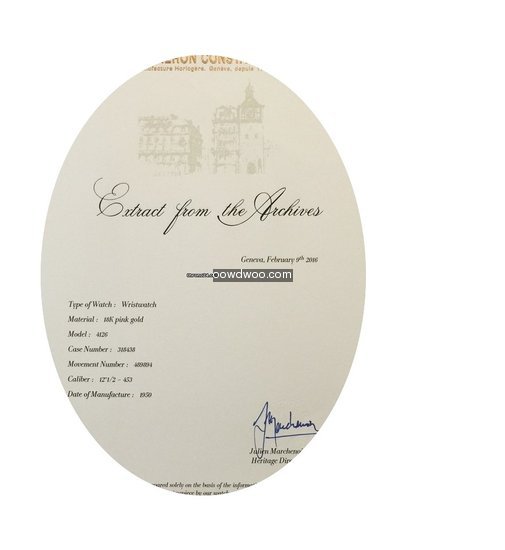 Extract from the Archives
Geneva, February 9th 2016
oowdwoo.com
Type of Watch : Wristwatch
Material : 18K pink gold
Model : 4126
Case Number : 318438
Movement Number : 489894
Caliber : 12"1/2 – 453
Date of Manufacture : 1950
Julien Marcheno
Heritage Dire
solely on the basis of the inform
by our watch